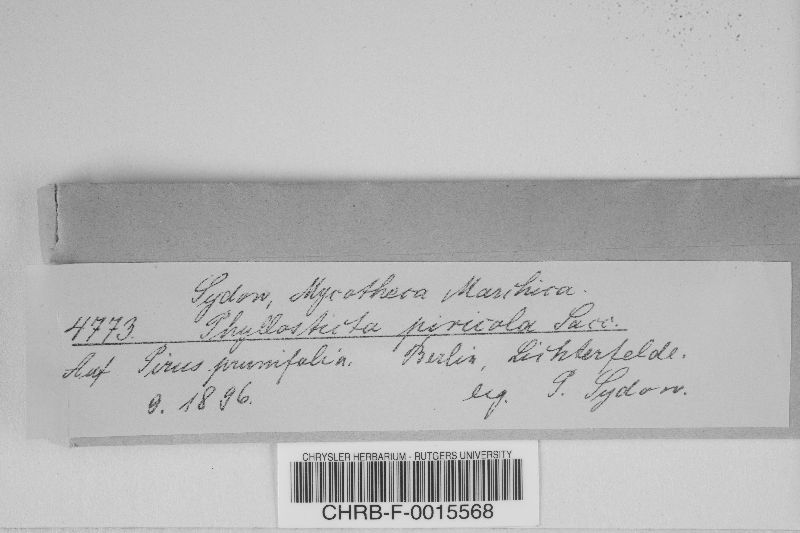 Sydow, Mycotheca Marchica.
4773. Phyllosticta piricola Sacc.
Auf Pirus prunifolia. Berlin, Lichterfelde.
9. 1896. leg. P. Sydow.
CHRYSLER HERBARIUM - RUTGERS UNIVERSITY
CHRB-F-0015568